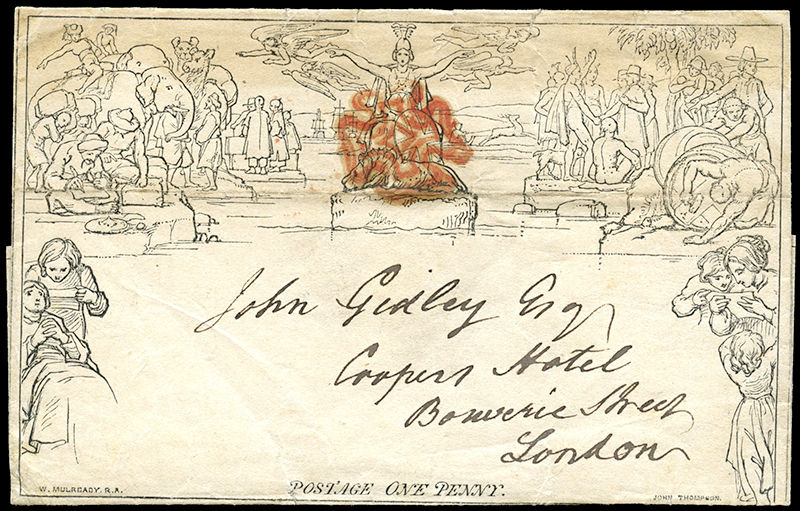 John Gidley Esq
Coopers Hotel
Bouverie Street
London
W. MULREADY, R.A.
POSTAGE ONE PENNY.
JOHN THOMPSON.